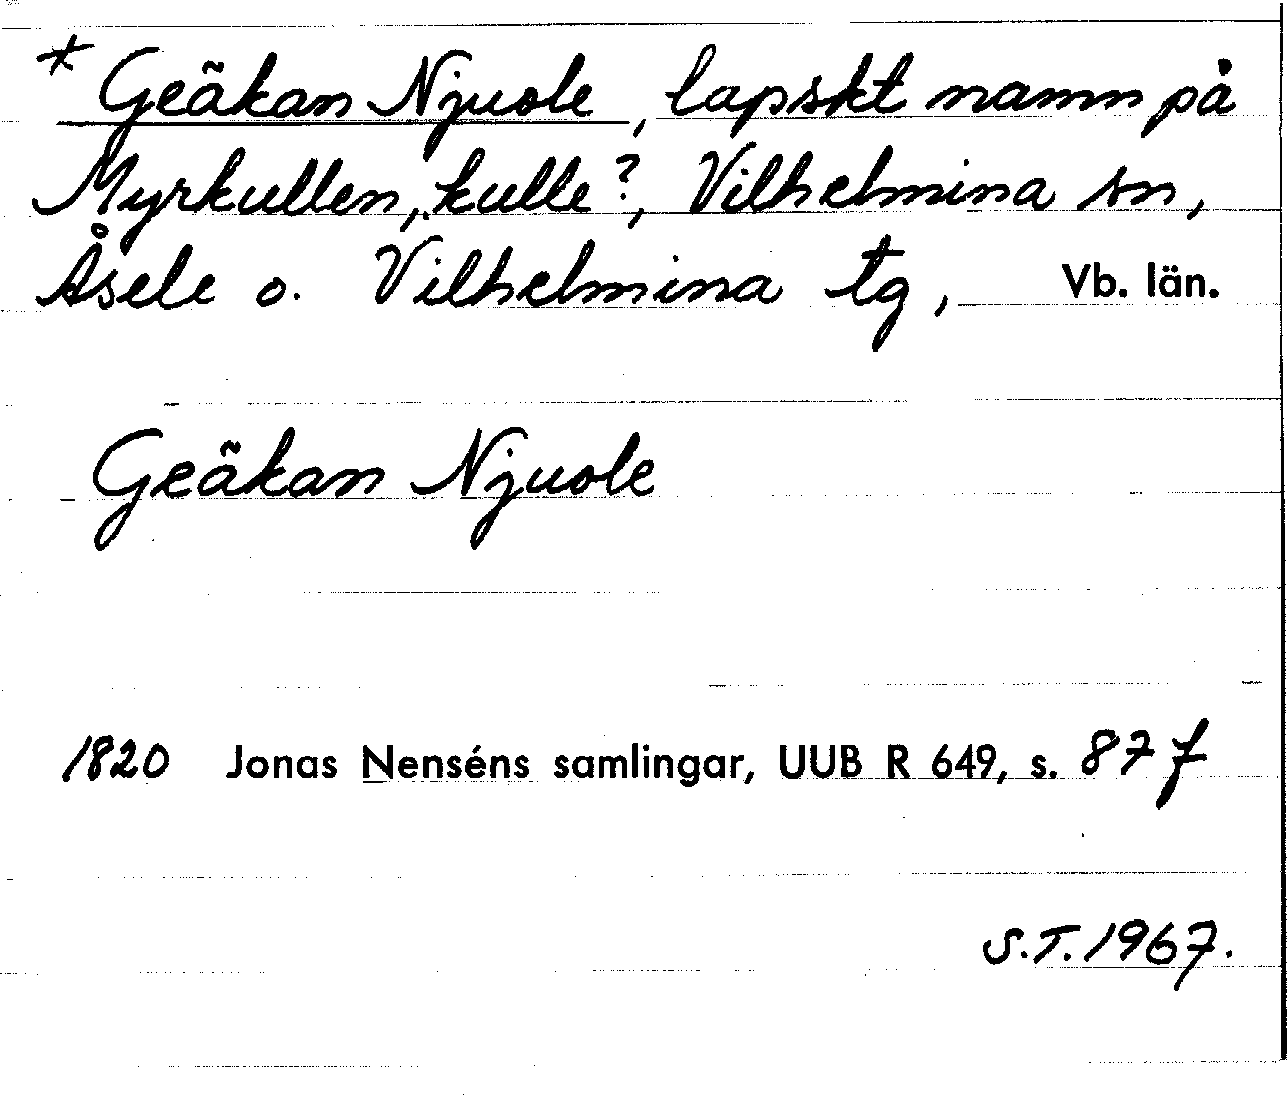 * Geãkan Njuole, lapskt namn på
Myrkullen, kulle?, Vilhelmina sn,
Åsele o. Vilhelmina tg, Vb. län.
Geãkan Njuole
1820 Jonas Nenséns samlingar, UUB R 649, s. 87 f
S.T. 1967.